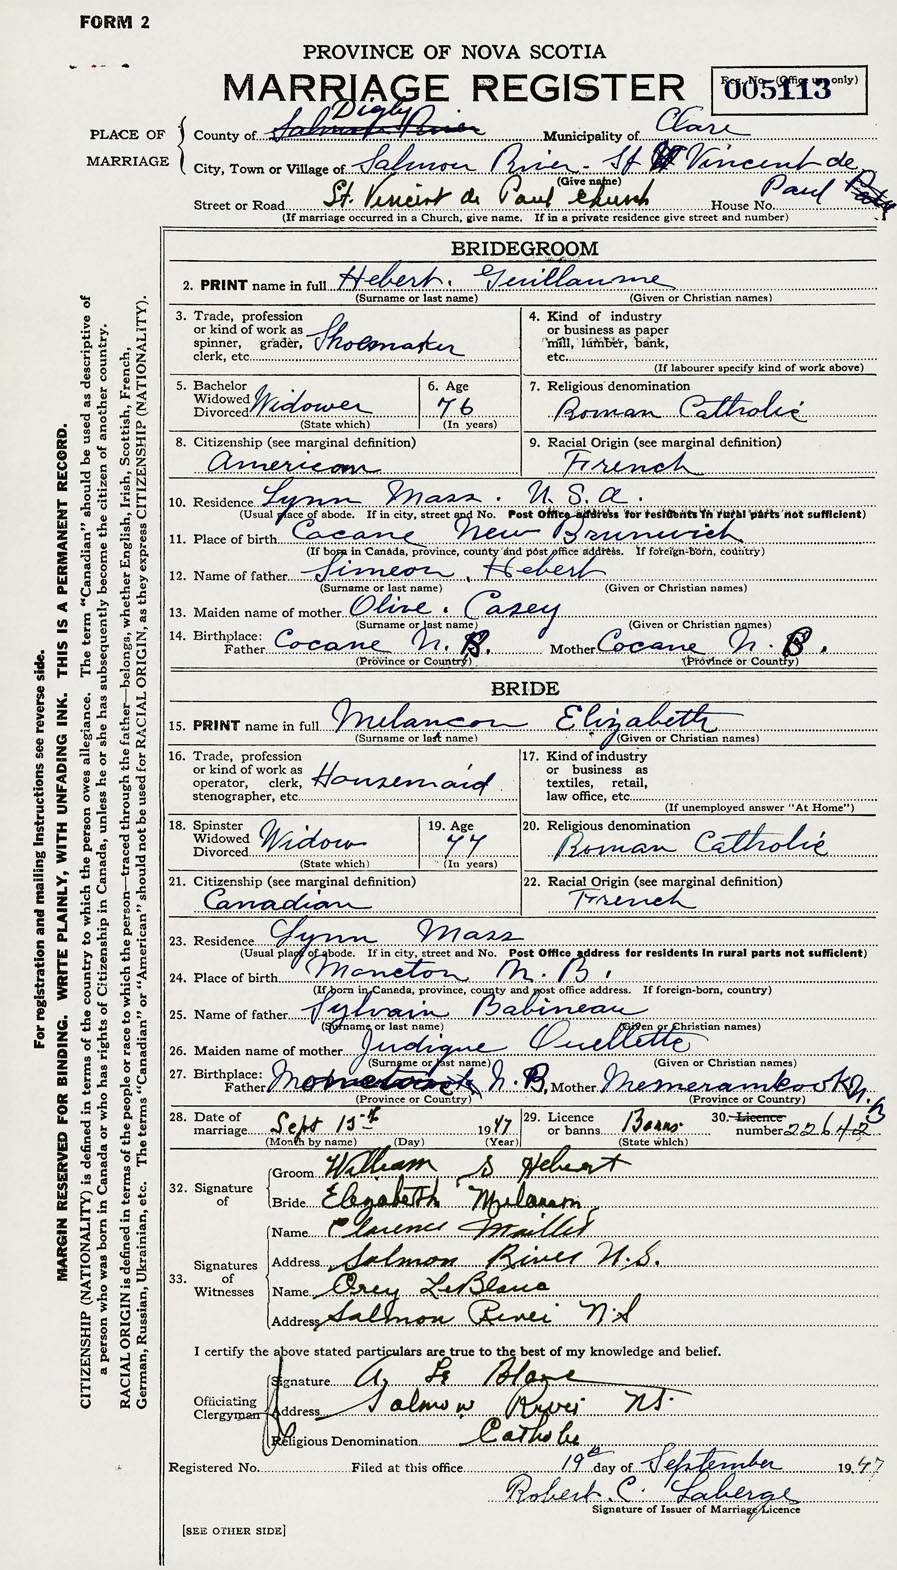 FORM 2
PROVINCE OF NOVA SCOTIA
MARRIAGE REGISTER
Reg. No. (Office use only)
005113
PLACE OF MARRIAGE
County of Digby Municipality of Clare
City, Town or Village of Salmon River - St Vincent de
(Give name) Paul
Street or Road St. Vincent de Paul Church House No.
(If marriage occurred in a Church, give name. If in a private residence give street and number)
BRIDEGROOM
2. PRINT name in full Hebert. Guillaume
(Surname or last name) (Given or Christian names)
3. Trade, profession or kind of work as spinner, grader, clerk, etc. Shoemaker
4. Kind of industry or business as paper mill, lumber, bank, etc.
(If labourer specify kind of work above)
5. Bachelor Widowed Divorced Widower
(State which)
6. Age 76
(In years)
7. Religious denomination
Roman Catholic
8. Citizenship (see marginal definition)
American
9. Racial Origin (see marginal definition)
French
10. Residence Lynn Mass. U.S.A.
(Usual place of abode. If in city, street and No. Post Office address for residents in rural parts not sufficient)
11. Place of birth Cocane New Brunswick
(If born in Canada, province, county and post office address. If foreign-born, country)
12. Name of father Simeon, Hebert
(Surname or last name) (Given or Christian names)
13. Maiden name of mother Olive. Casey
(Surname or last name) (Given or Christian names)
14. Birthplace: Father Cocane N. B. Mother Cocane N. B.
(Province or Country) (Province or Country)
BRIDE
15. PRINT name in full Melancon Elizabeth
(Surname or last name) (Given or Christian names)
16. Trade, profession or kind of work as operator, clerk, stenographer, etc. Housemaid
17. Kind of industry or business as textiles, retail, law office, etc.
(If unemployed answer "At Home")
18. Spinster Widowed Divorced Widow
(State which)
19. Age 77
(In years)
20. Religious denomination
Roman Catholic
21. Citizenship (see marginal definition)
Canadian
22. Racial Origin (see marginal definition)
French
23. Residence Lynn Mass
(Usual place of abode. If in city, street and No. Post Office address for residents in rural parts not sufficient)
24. Place of birth Moncton N. B.
(If born in Canada, province, county and post office address. If foreign-born, country)
25. Name of father Sylvain Babineau
(Surname or last name) (Given or Christian names)
26. Maiden name of mother Judique Ouellette
(Surname or last name) (Given or Christian names)
27. Birthplace: Father N. B. Mother Memeramkook N.B
(Province or Country) (Province or Country)
28. Date of marriage Sept 15th 1947
(Month by name) (Day) (Year)
29. Licence or banns Banns
(State which)
30. Licence number 22642
32. Signature of
Groom William S Hebert
Bride Elizabeth Melanson
33. Signatures of Witnesses
Name Clarence Maillet
Address Salmon River N.S.
Name Orey LeBlanc
Address Salmon River N.S
I certify the above stated particulars are true to the best of my knowledge and belief.
Officiating Clergyman
Signature A. Le Blanc
Address Salmon River NS.
Religious Denomination Catholic
Registered No. Filed at this office 19th day of September 1947
Robert C. Laberge
Signature of Issuer of Marriage Licence
[SEE OTHER SIDE]
For registration and mailing instructions see reverse side.
MARGIN RESERVED FOR BINDING. WRITE PLAINLY, WITH UNFADING INK. THIS IS A PERMANENT RECORD.
CITIZENSHIP (NATIONALITY) is defined in terms of the country to which the person owes allegiance. The term "Canadian" should be used as descriptive of
a person who was born in Canada or who has rights of Citizenship in Canada, unless he or she has subsequently become the citizen of another country.
RACIAL ORIGIN is defined in terms of the people or race to which the person—traced through the father—belongs, whether English, Irish, Scottish, French,
German, Russian, Ukrainian, etc. The terms "Canadian" or "American" should not be used for RACIAL ORIGIN, as they express CITIZENSHIP (NATIONALITY).